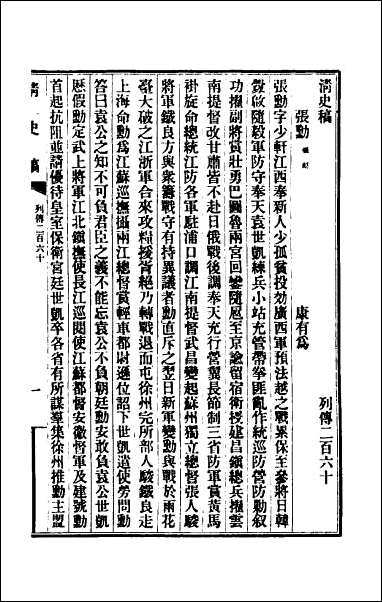 清史稿
列傳二百六十
張勳 康有爲
張勳字少軒江西奉新人少孤貧投効廣西軍預法越之戰累保至參將日韓
釁啟隨毅軍防守奉天袁世凱練兵小站充管帶拳匪亂作統巡防營防勦敘
功擢副將賞壯勇巴圖魯兩宮回鑾隨扈至京諭留宿衛授建昌鎮總兵擢雲
南提督改甘肅皆不赴日俄戰後調奉天充行營翼長節制三省防軍賞黃馬
褂旋命總統江防各軍駐浦口調江南提督武昌變起蘇州獨立總督張人駿
將軍鐵良方與衆籌戰守有持異議者勳直斥之翌日新軍變勳與戰於雨花
臺大破之江浙軍合來攻糧援胥絕乃轉戰退而屯徐州完所部人駿鐵良走
上海命勳爲江蘇巡撫攝兩江總督賞輕車都尉遜位詔下世凱遣使勞問勳
答曰袁公之知不可負君臣之義不能忘袁公不負朝廷勳安敢負袁公世凱
歷假勳定武上將軍江北鎮撫使長江巡閱使江蘇都督安徽督軍及建號勳
首起抗阻並請優待皇室保衛宮廷世凱卒各省有所謀羣集徐州推勳主盟
清史稿
列傳二百六十
一